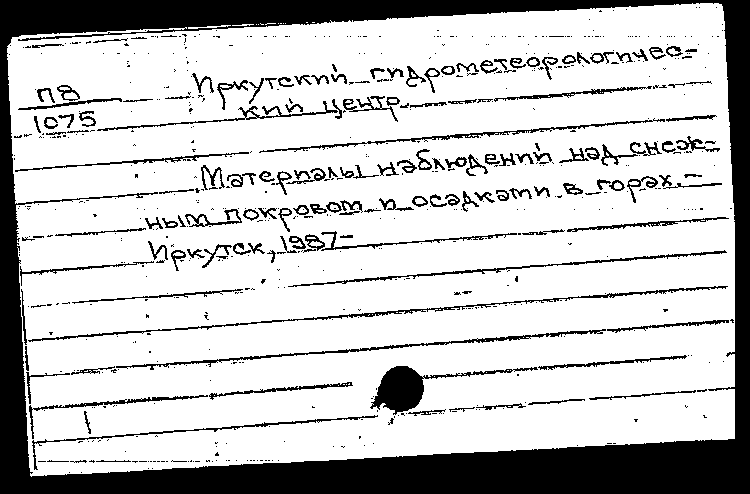 П8
1075
Иркутский гидрометеорологичес-
кий центр.
Материалы наблюдений над снеж-
ным покровом и осадками в горах. -
Иркутск, 1987-